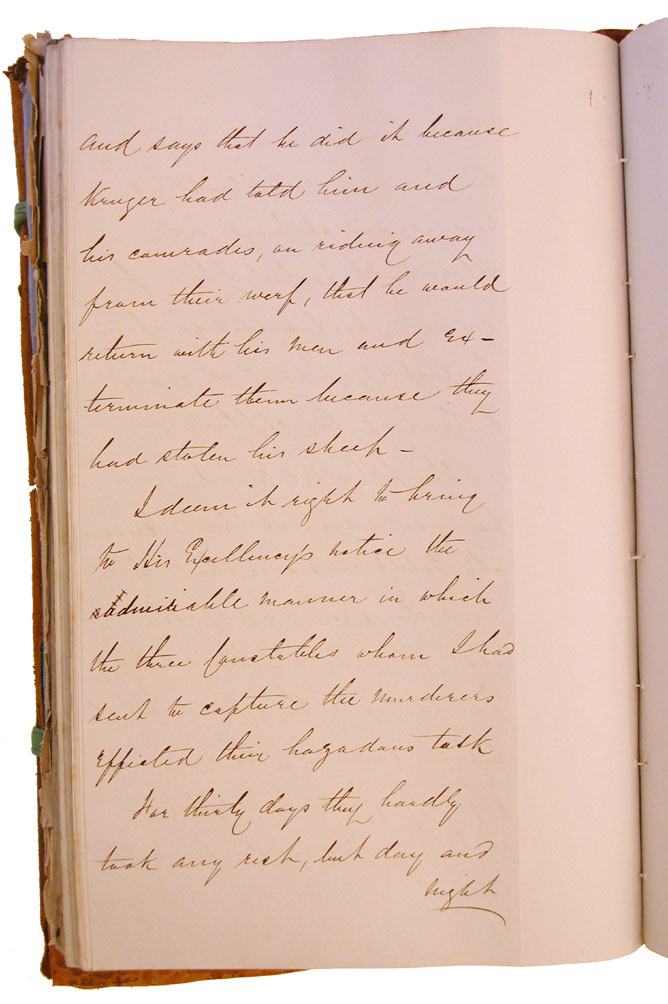 and says that he did it because
Kruger had told him and
his comrades, on riding away
from their werf, that he would
return with his men and Ex-
terminate them because they
had stolen his sheep -
I deem it right to bring
to His Excellency's notice the
admirable manner in which
the three Constables whom I had
sent to capture the murderers
Effected their hazadous task
For thirty days they hardly
took any rest, but day and
night